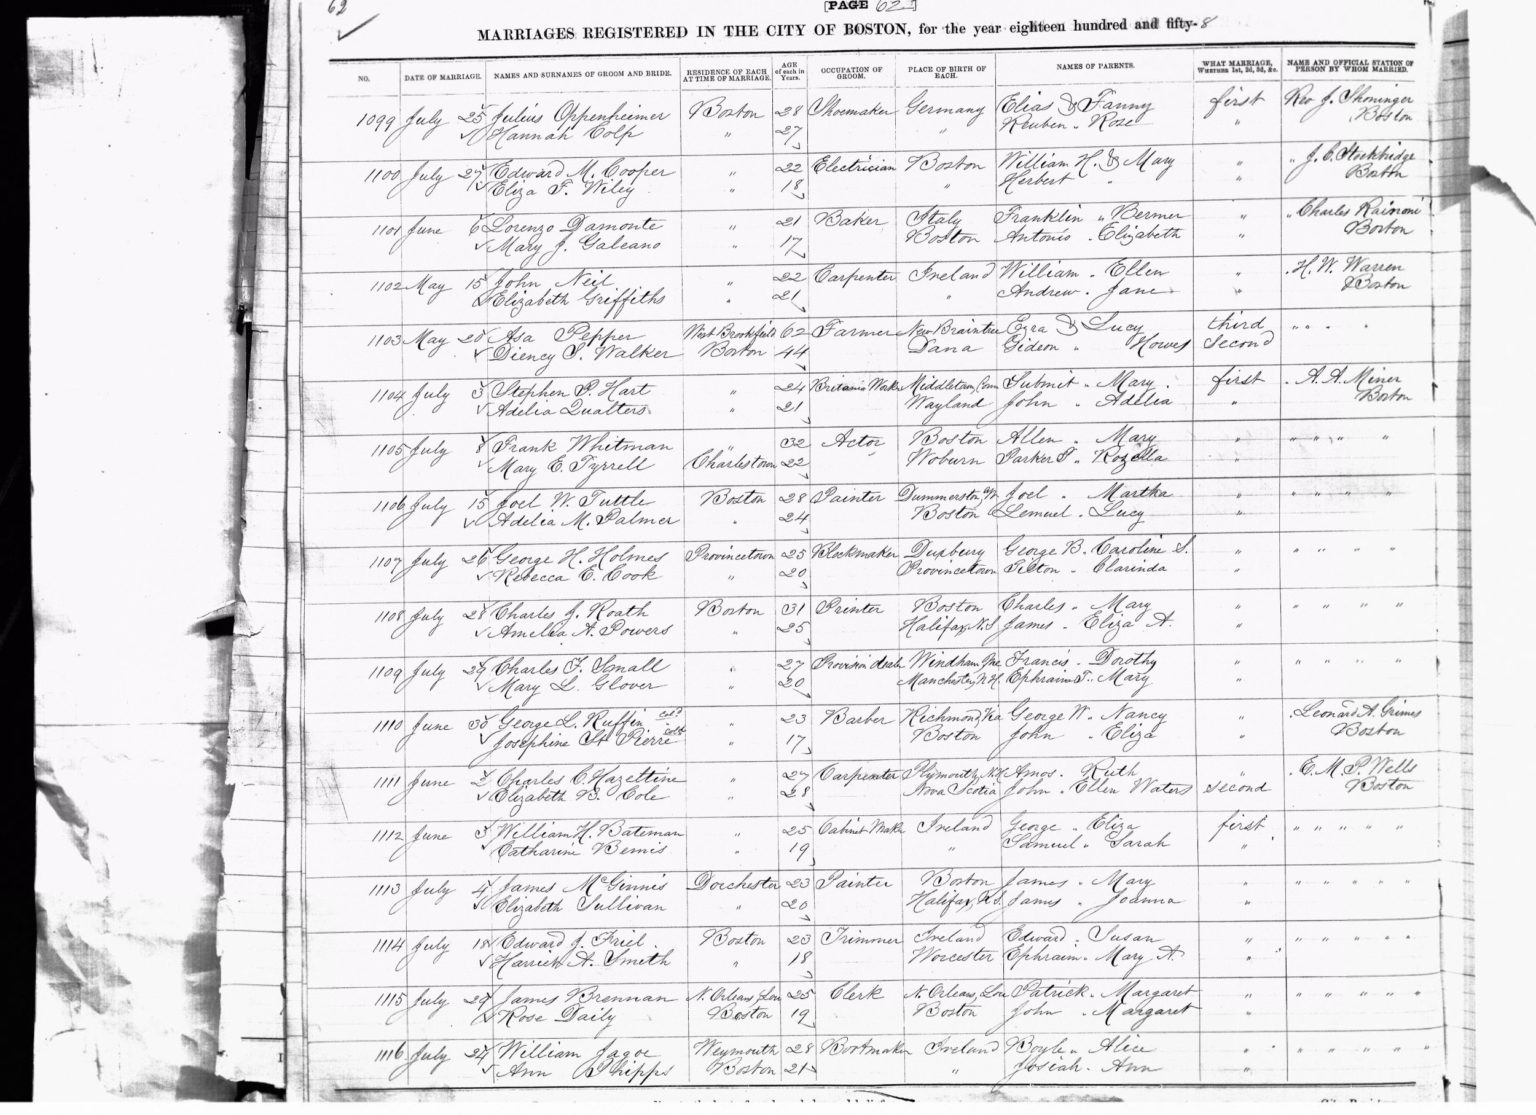 62
[PAGE 62]
MARRIAGES REGISTERED IN THE CITY OF BOSTON, for the year eighteen hundred and fifty-8
NO. DATE OF MARRIAGE. NAMES AND SURNAMES OF GROOM AND BRIDE. RESIDENCE OF EACH AT TIME OF MARRIAGE. AGE of each in Years. OCCUPATION OF GROOM. PLACE OF BIRTH OF EACH. NAMES OF PARENTS. WHAT MARRIAGE, WHETHER 1st, 2d, 3d, &c. NAME AND OFFICIAL STATION OF PERSON BY WHOM MARRIED.
1099 July 25 Julius Oppenheimer Boston 28 Shoemaker Germany Elias & Fanny first Rev J. Shoninger
Hannah Colp " 27 " Reuben " Rose " Boston
1100 July 27 Edward M. Cooper " 22 Electrician Boston William H. & Mary " " J. C. Stockbridge
Eliza F. Wiley " 18 " Herbert " " Boston
1101 June 6 Lorenzo Damonte " 21 Baker Italy Franklin " Bermer " " Charles Rainoni
Mary J. Galeano " 17 Boston Antonio " Elizabeth " Boston
1102 May 15 John Neil " 22 Carpenter Ireland William " Ellen " " H. W. Warren
Elizabeth Griffiths " 21 " Andrew " Jane " Boston
1103 May 20 Asa Pepper West Brookfield 62 Farmer New Braintree Ezra & Lucy third " " " "
Diency S. Walker Boston 44 Dana Gideon " Howes Second
1104 July 3 Stephen P. Hart " 24 Britania Worker Middletown, Conn Submit " Mary first " A. A. Miner
Adelia Qualters " 21 Wayland John " Adelia " Boston
1105 July 8 Frank Whitman " 32 Actor Boston Allen " Mary " " " " "
Mary E. Tyrrell Charlestown 22 Woburn Parker T. " Rozilla "
1106 July 15 Joel W. Tuttle Boston 28 Painter Dummerston, Vt Joel " Martha " " " " "
Adelia M. Palmer " 24 Boston Lemuel " Lucy "
1107 July 26 George H. Holmes Provincetown 25 Blockmaker Duxbury George B. Caroline S. " " " " "
Rebecca E. Cook " 20 Provincetown Tilton " Clarinda "
1108 July 28 Charles J. Roath Boston 31 Printer Boston Charles " Mary " " " " "
Amelia A. Powers " 25 Halifax, N.S James " Eliza A. "
1109 July 29 Charles F. Small " 27 Provision deale Windham, Me Francis " Dorothy " " " " "
Mary L. Glover " 20 Manchester, N.H. Ephraim T. " Mary "
1110 June 30 George L. Ruffin Col'd " 23 Barber Richmond, Va George W. " Nancy " " Leonard A. Grimes
Josephine St Pierre Col'd " 17 Boston John " Eliza " Boston
1111 June 2 Charles C. Hazeltine " 27 Carpenter Plymouth, N.H. Amos " Ruth " " E. M. P. Wells
Elizabeth B. Cole " 28 Nova Scotia John " Ellen Waters Second Boston
1112 June 3 William H. Bateman " 25 Cabinet Make Ireland George " Eliza first " " " " "
Catharine Bemis " 19 " Samuel " Sarah "
1113 July 4 James McGinnis Dorchester 23 Painter Boston James " Mary " " " " " "
Elizabeth Sullivan " 20 Halifax, N.S. James " Joanna "
1114 July 18 Edward J. Friel Boston 23 Trimmer Ireland Edward " Susan " " " " " "
Harriet A. Smith " 18 Worcester Ephraim " Mary A. "
1115 July 29 James Brennan N. Orleans, Lou 25 Clerk N. Orleans, Lou Patrick " Margaret " " " " " "
Rose Daily Boston 19 Boston John " Margaret "
1116 July 24 William Jagoe Weymouth 28 Bootmaker Ireland Boyle " Alice " " " " " "
Ann Phipps Boston 21 " Josiah " Ann "